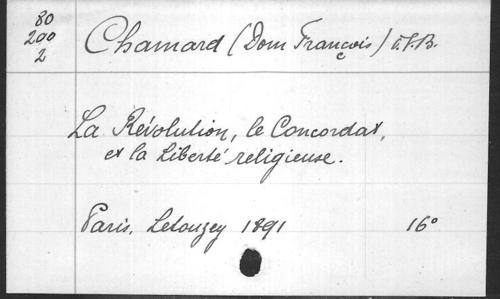 80
200
2
Chamard (Dom François) O.S.B.
La Révolution, le Concordat,
et la Liberté religieuse.
Paris, Letouzey 1891 16°